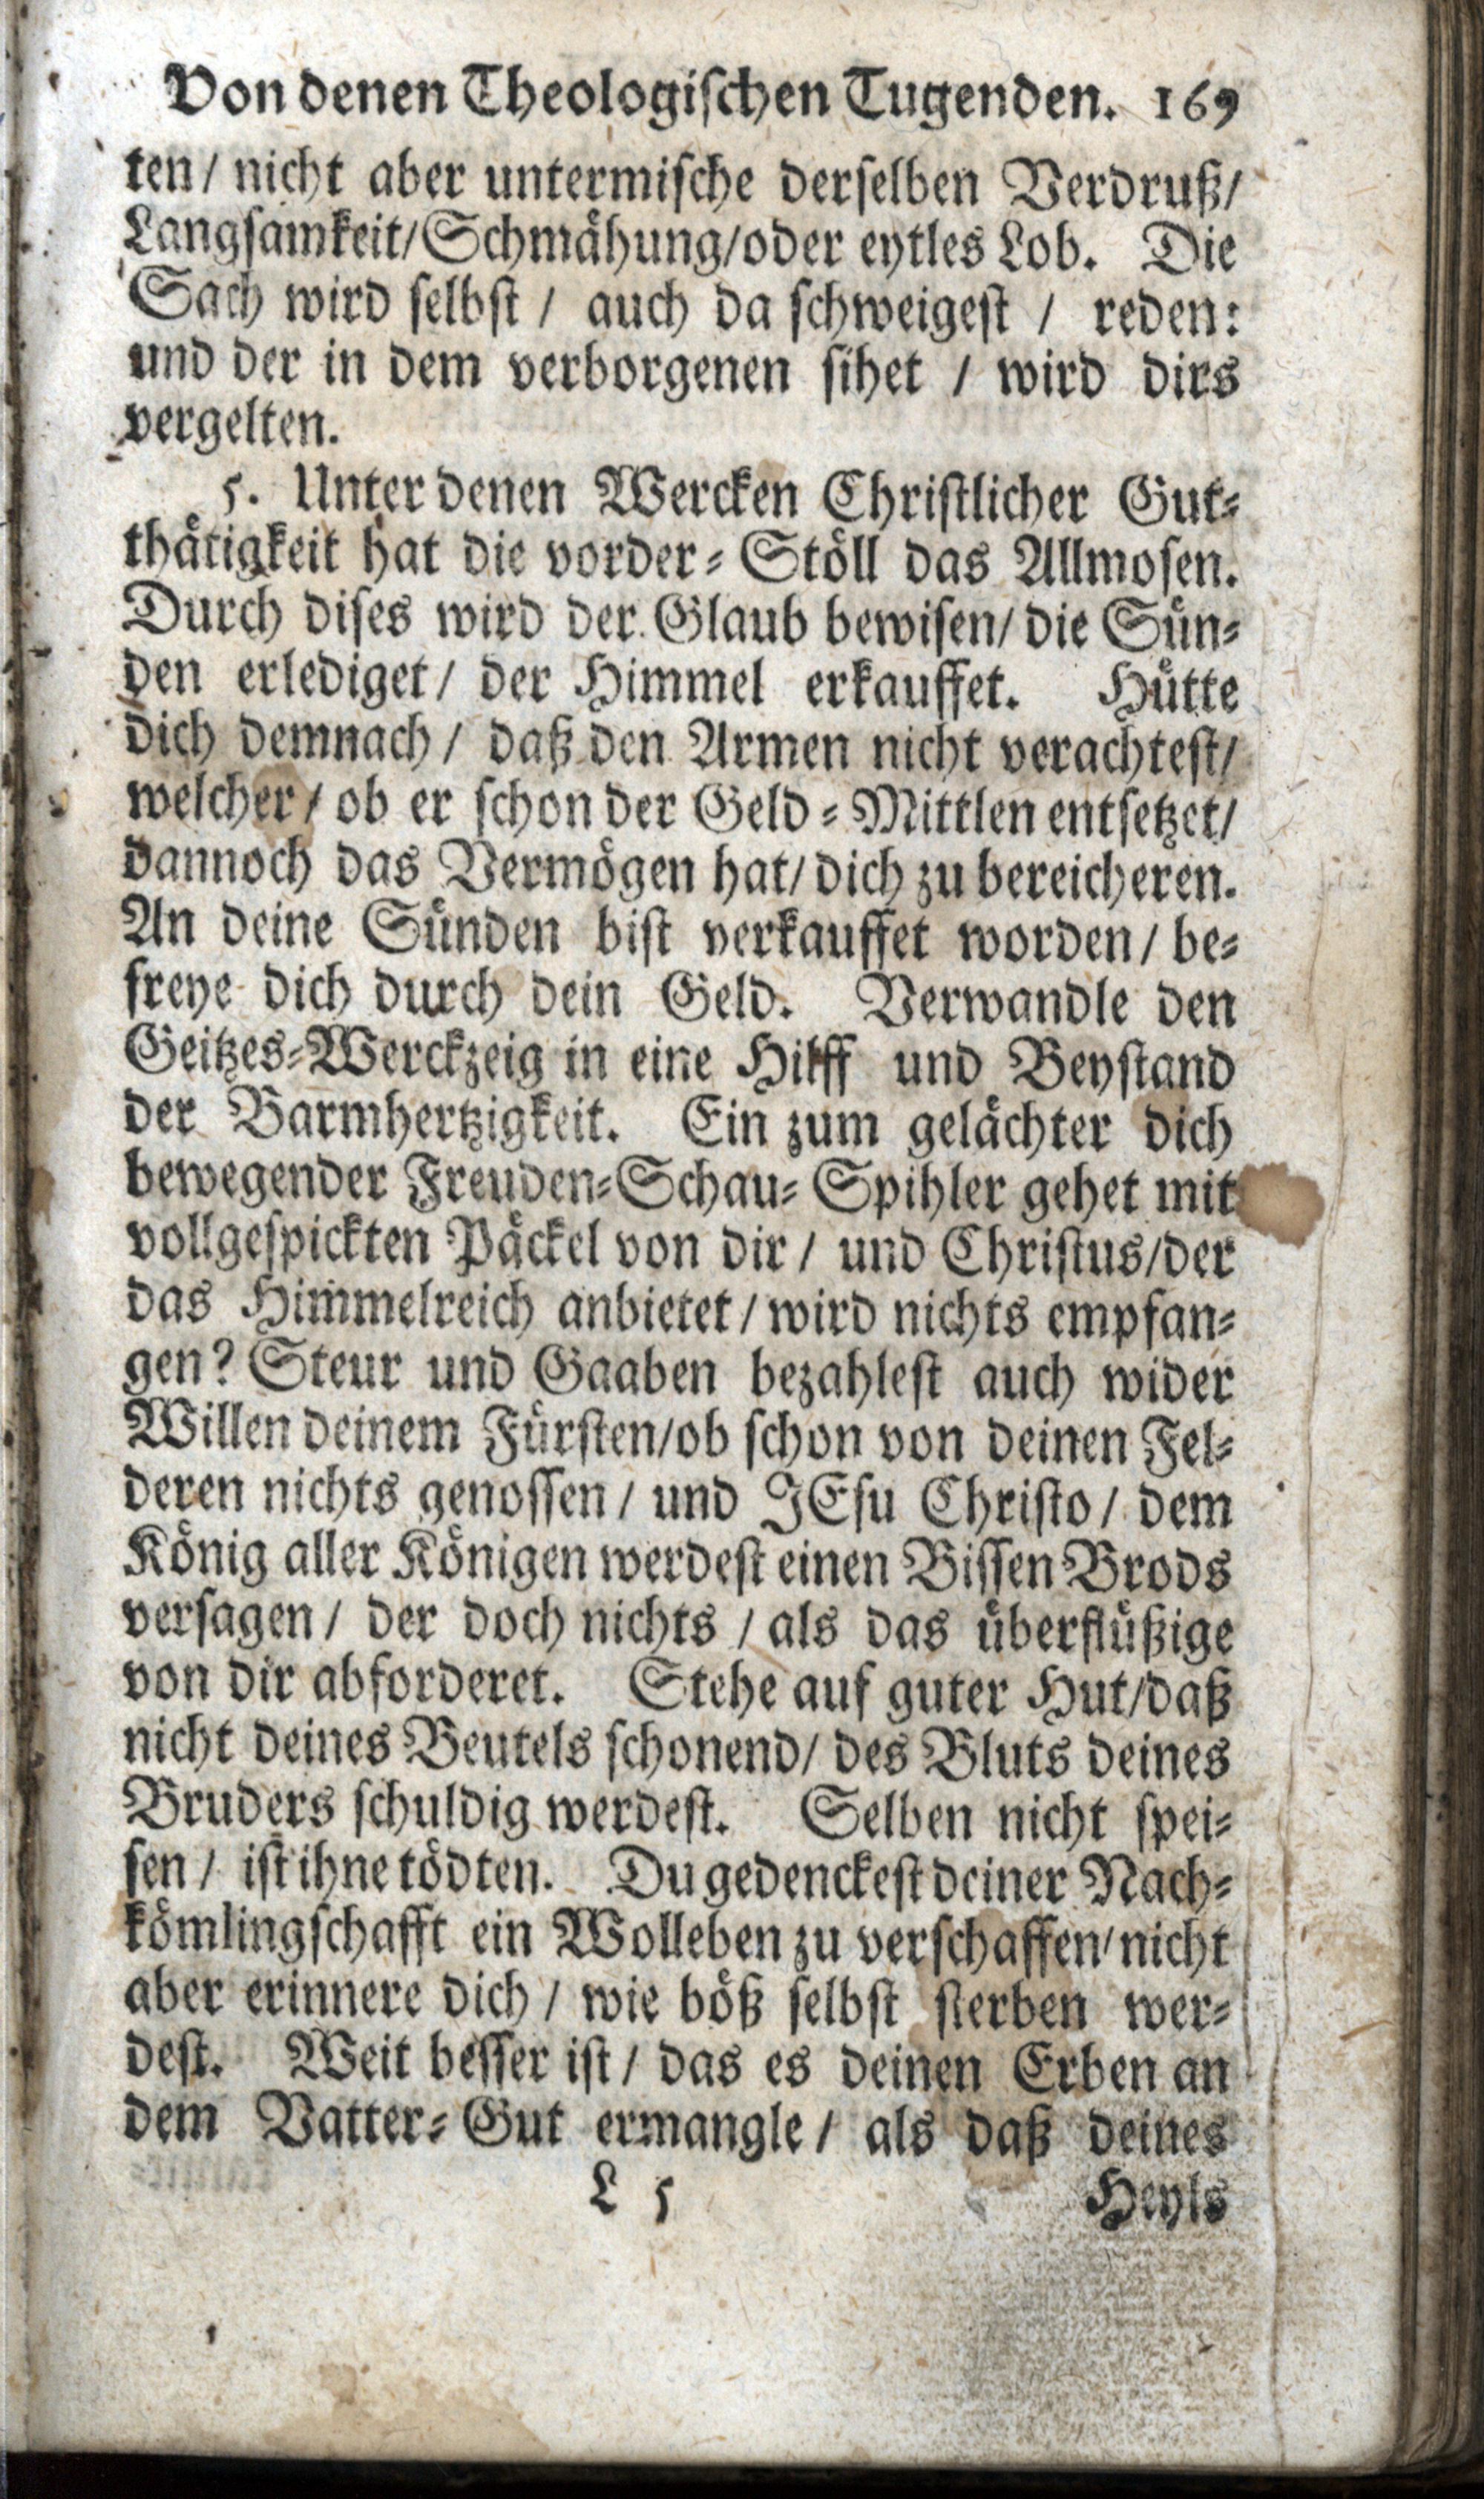 Von denen Theologischen Tugenden. 169
ten / nicht aber untermische derselben Verdruß/
Langsamkeit/Schmähung/oder eytles Lob. Die
Sach wird selbst / auch da schweigest / reden:
und der in dem verborgenen sihet / wird dirs
vergelten.
5. Unter denen Wercken Christlicher Gut-
thätigkeit hat die vorder-Stöll das Allmosen.
Durch dises wird der Glaub bewisen/ die Sün-
den erlediget / der Himmel erkauffet. Hütte
dich demnach / daß den Armen nicht verachtest/
welcher / ob er schon der Geld-Mittlen entsetzet/
dannoch das Vermögen hat/ dich zu bereicheren.
An deine Sünden bist verkauffet worden / be-
freye dich durch dein Geld. Verwandle den
Geitzes-Werckzeig in eine Hilff und Beystand
der Barmhertzigkeit. Ein zum gelächter dich
bewegender Freuden-Schau-Spihler gehet mit
vollgespickten Päckel von dir / und Christus/der
das Himmelreich anbietet / wird nichts empfan-
gen? Steur und Gaaben bezahlest auch wider
Willen deinem Fürsten/ob schon von deinen Fel-
deren nichts genossen / und JEsu Christo / dem
König aller Königen werdest einen Bissen Brods
versagen / der doch nichts / als das überflüßige
von dir abforderet. Stehe auf guter Hut/daß
nicht deines Beutels schonend/ des Bluts deines
Bruders schuldig werdest. Selben nicht spei-
sen / ist ihne tödten. Du gedenckest deiner Nach-
kömlingschafft ein Wolleben zu verschaffen/nicht
aber erinnere dich / wie böß selbst sterben wer-
dest. Weit besser ist / das es deinen Erben an
dem Vatter-Gut ermangle / als daß deines
L 5 Heyls